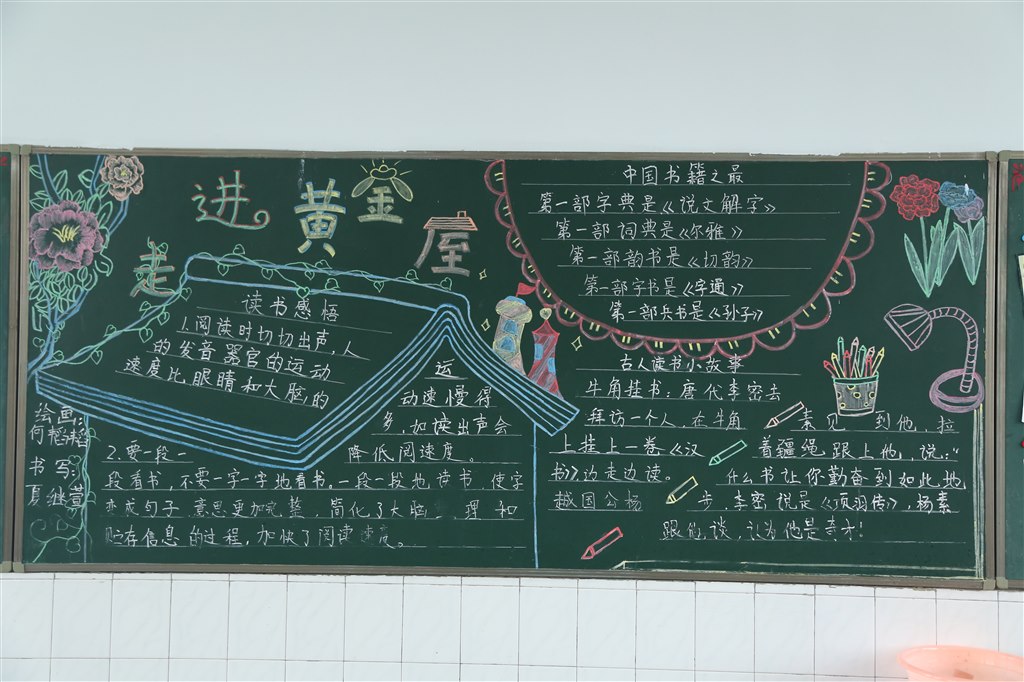 走进黄金屋
绘画:
何韬韬
书写:
夏继萱
读书感悟
1.阅读时切切出声,人
的发音器官的运动
速度比眼睛和大脑的
运
动速慢得
多,如读出声会
降低阅速度。
2.要一段一
段看书,不要一字一字地看书。一段一段地读书,使字
亦成句子,意思更加完整,简化了大脑 理和
贮存信息的过程,加快了阅读速度。
中国书籍之最
第一部字典是《说文解字》
第一部词典是《尔雅》
第一部韵书是《切韵》
第一部字书是《字通》
第一部兵书是《孙子》
古人读书小故事
牛角挂书:唐代李密去
拜访一个人,在牛角
上挂上一卷《汉
书》,边走边读。
越国公杨
素见 到他,拉
着疆绳,跟上他,说:“
什么书让你勤奋到如此地
步,李密说是《项羽传》,杨素
跟他谈,认为他是奇才!